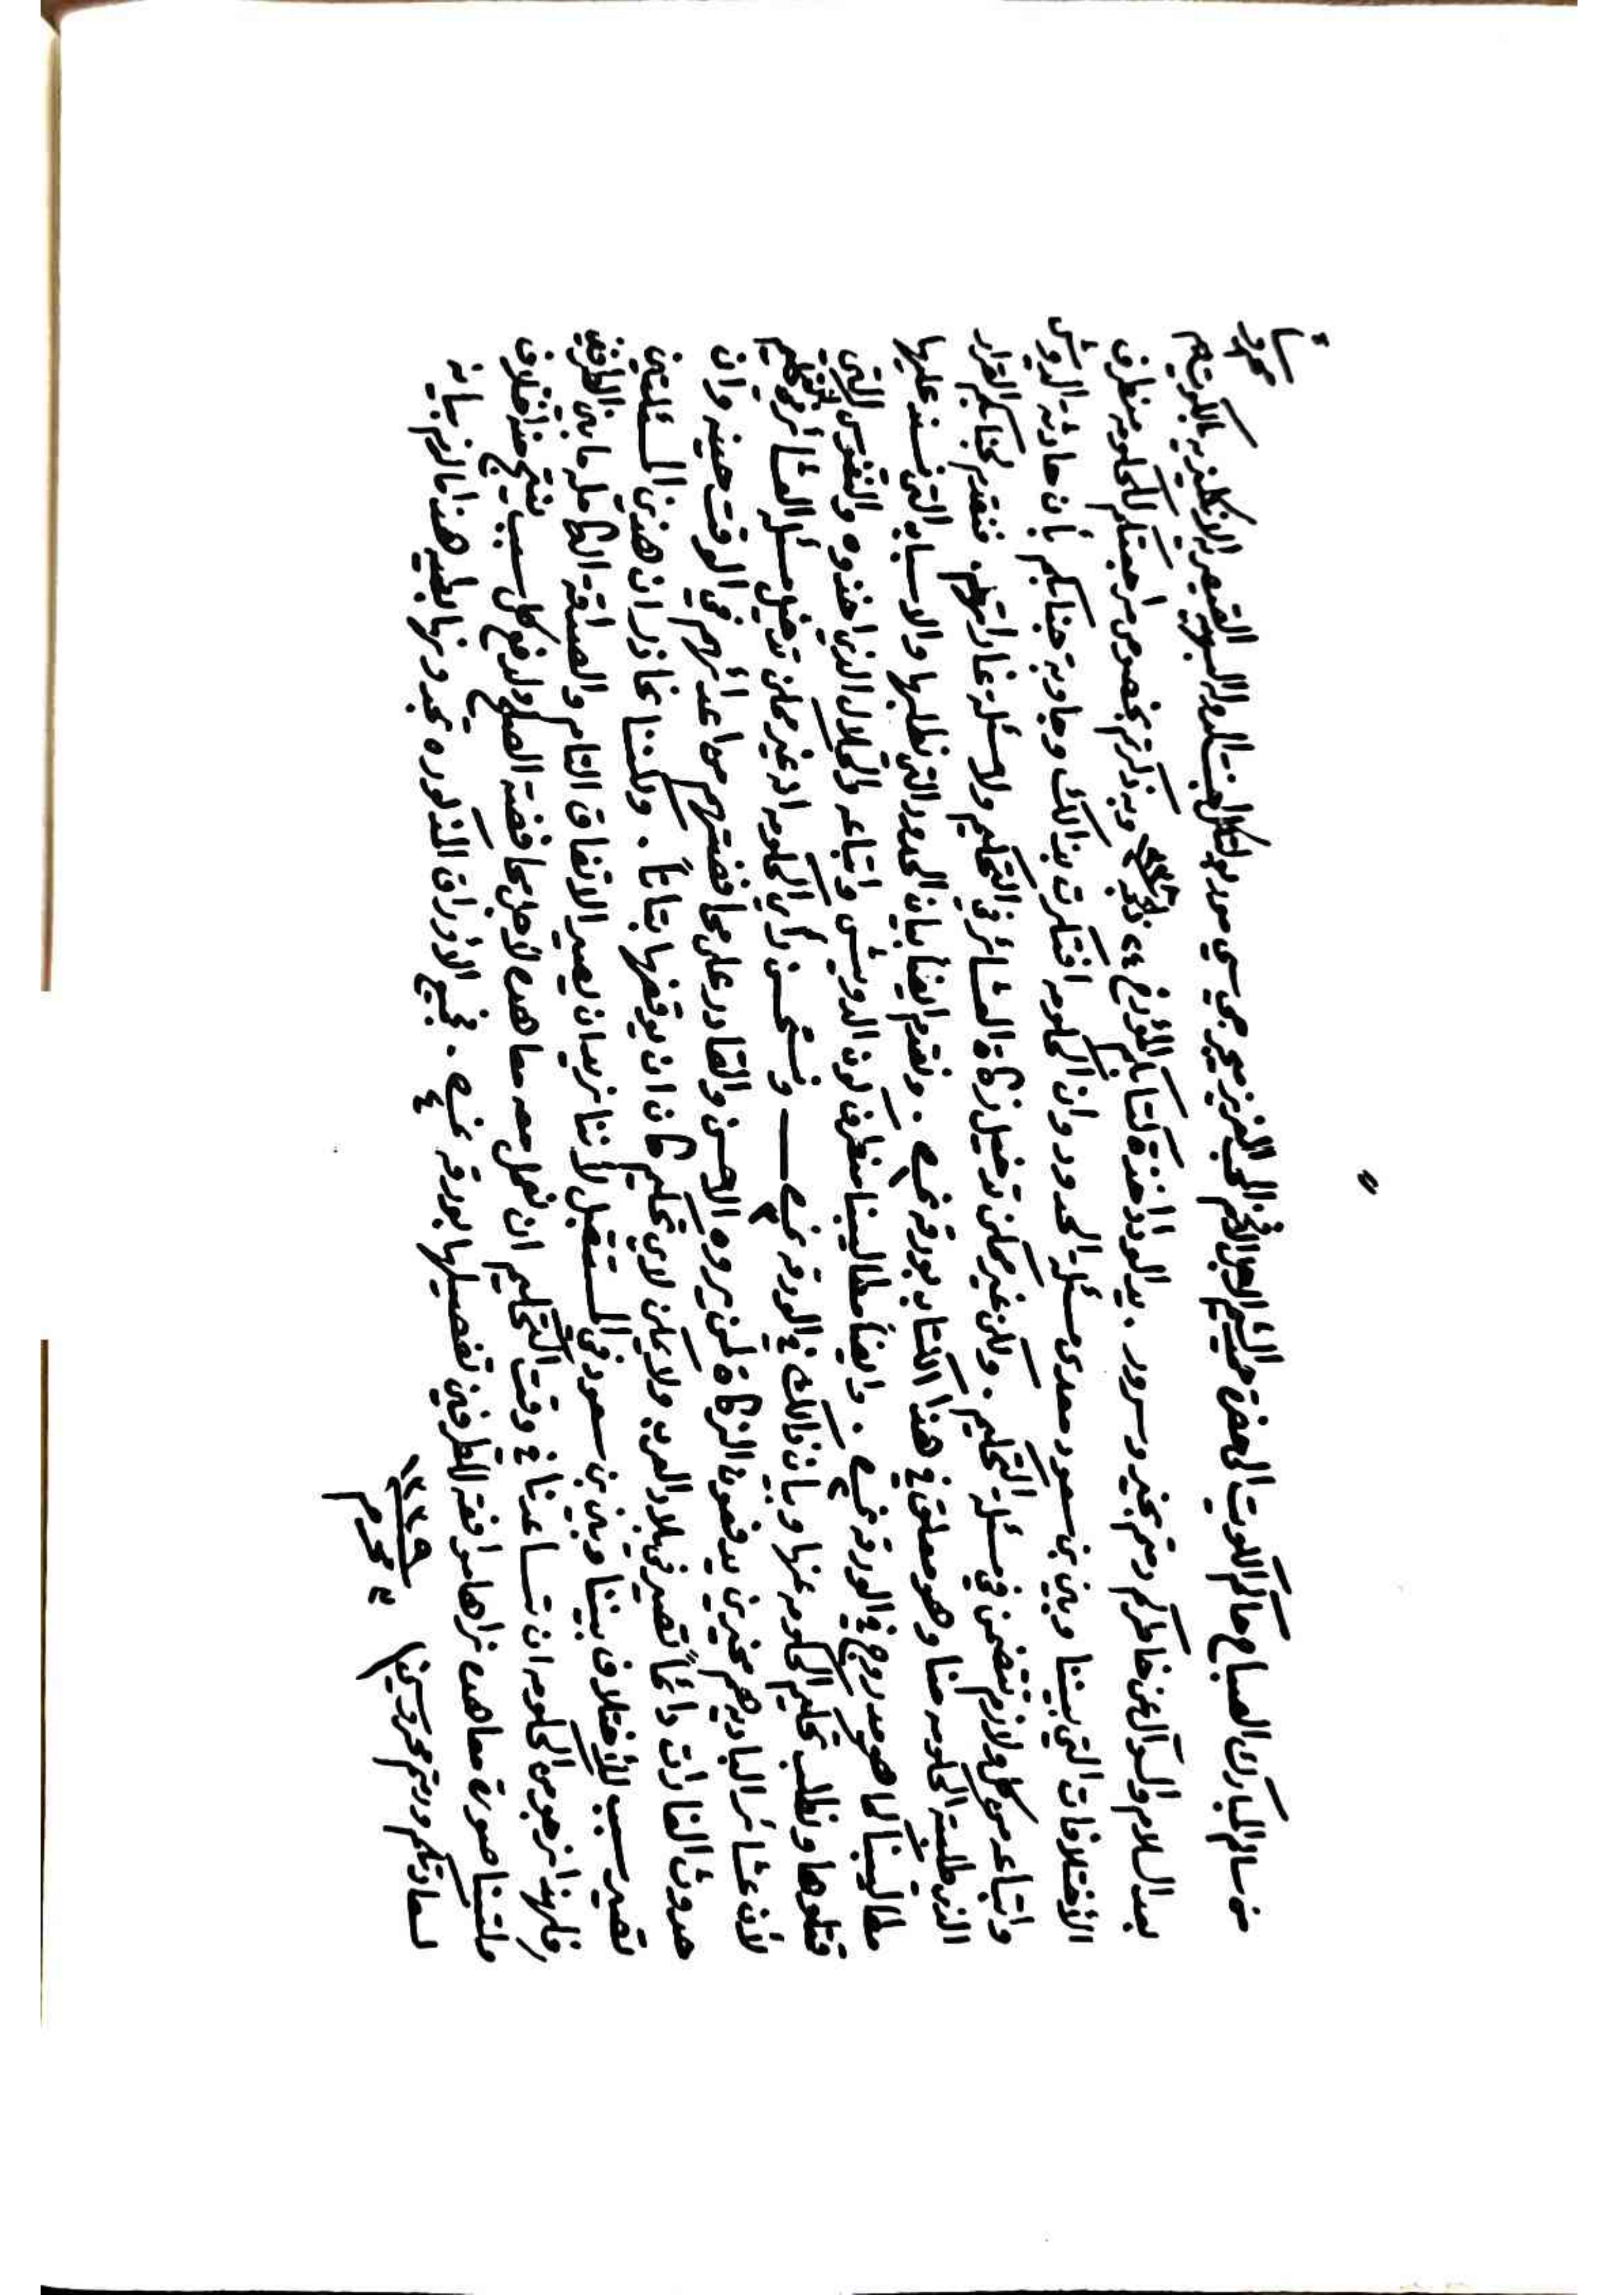 من سالم المبارك الصباح حاكم الكويت الى حضرة حميد الشيم الاجل الافخم المحب العزيز ميجر جي سي مور بولتكل اجنت الدوله البهيه القيصريه الانكليزيه بالكويت دام
محروسا
بعد السلام والسؤال عن خاطركم دمتم بخير وسرور . بيد الوداد اخذة كتابكم المؤرخ وبه ذكرتم بخصوص مراجعتكم للحكومه منطرف
الاختلافات التي بيننا وبين بن سعود معدى مسئلة الحدود وان الحكومه افتكرت بذالك وجاوبة جنابكم بأن حادثة الدويش
واتباعه موكل ولازم تتضمن في مسئلة التحكيم . ولكن غير ممكن تدخيل زكاة العشائر في التحكيم ولا مسئلة غاراتهم . فنقدم لجنابكم القرار
الذي طلبته الحكومه منا وهو معلق في هذا الكتاب بورقة نمرة . ونقدم ايضا بيان الحدود التي نطلبها والاسباب التي نستند عليها
مطالبتنا كما هو مدروج في الورقة نمرة . وايضا مطاليبنا منطرف كون الدويش واتباعه والحلال الذي اخذوه والنفوس التي
قتلوها ونطلب تحكيم الحكومه عنها وبيان ذالك في الورقة نمرة — ونستحسن رأي الحكومه انه غير ممكن تدخيل مسئلة العشائر في التحكيم
لأن عشائر الباديه هم مخيرين يدفعون الزكاة لمن يروه الاحسن والقادر على محافضتهم من اعدائهم في الوقت حينه وان
حدوث الغارات دائماً تصير في بلاد العرب ولا يمكن لاي تحكيم كان ان يوقفها بتاتاً . ولكننا نحاذر ان هذين المسئلتين
تصير سبب للاختلاف بيننا وبين بن سعود في المستقبل لأننا نريد ان يصير الاتفاق التام والصداقة الكامله مابين الطرفين
ولهذا نرجو من الحكومه ان تساعدنا في وقت التحكيم ان نعمل معه معاهده لأجل محافضة الصلح ولدفع كل سبب ينتج منه اختلاف
ملتنا صورة معاهده نراها موافقة للطرفين تفصيلها بورقة نمرة ٤ . فجميع الأوراق المذكوره تجدونها بطيه هذا ما لزم بيانه
لسعادتكم ودمتم محروسين محرم ١٣٣٩